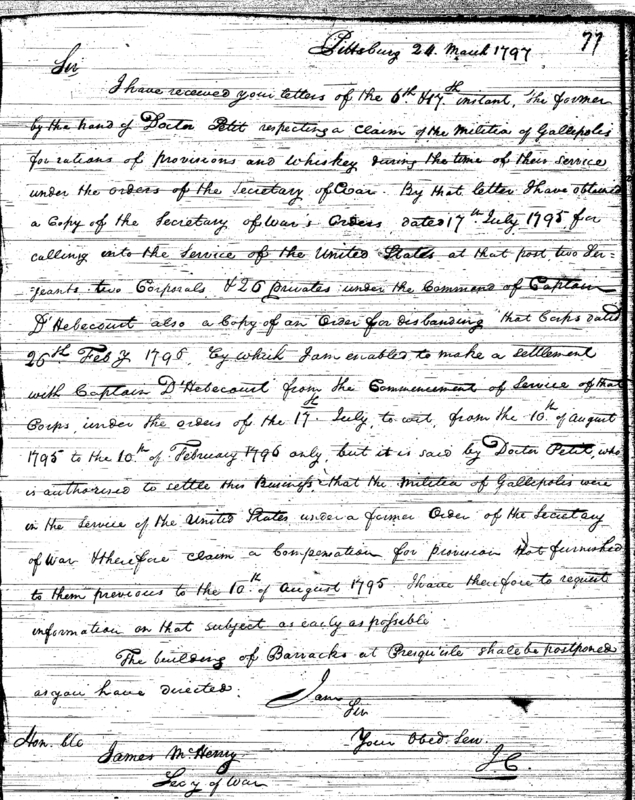 77
Pittsburg 24. March 1797
Sir
I have received your letters of the 6th & 17th instant, The former
by the hand of Doctor Petit respecting a claim of the Militia of Gallepolis
for rations of provisions and whiskey during the time of their service
under the orders of the Secretary of War. By that letter I have obtained
a Copy of the Secretary of War's Orders, dated 17th July 1795 for
calling into the Service of the United States at that post two Ser-
jeants two Corporals & 26 privates under the Command of Captain
D'Hebecourt also a Copy of an Order for disbanding that Corps dated
26th Feby 1796. By which I am enabled to make a settlement
with Captain D'Hebecourt from the Commencement of Service of that
Corps, under the orders of the 17th July, to wit, from the 10th of august
1795 to the 10th of February 1796 only, but it is said by Doctor Petit, who
is authorised to settle this Business that the Militia of Gallepolis were
in the Service of the United States under a former Order of the Secretary
of War & therefore claim a Compensation for provision not furnished
to them previous to the 10th of August 1795. I have therefore to request
information on that subject as early as possible.
The building of Barracks at Presqu'isle shall be postponed
as you have directed.
I am
Sir
Your Obed. Serv.
J C.
Hon. ble
James McHenry
Secy of War